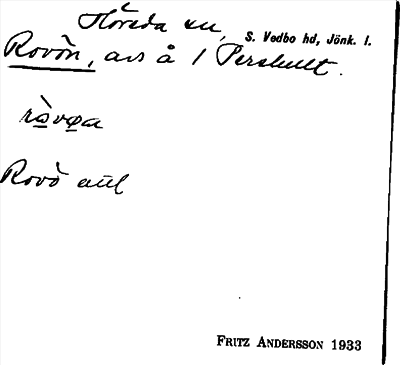 Höreda sn,
S. Vedbo hd, Jönk. l.
Rovön, avs å 1 Pershult.
Rovö
FRITZ ANDERSSON 1933